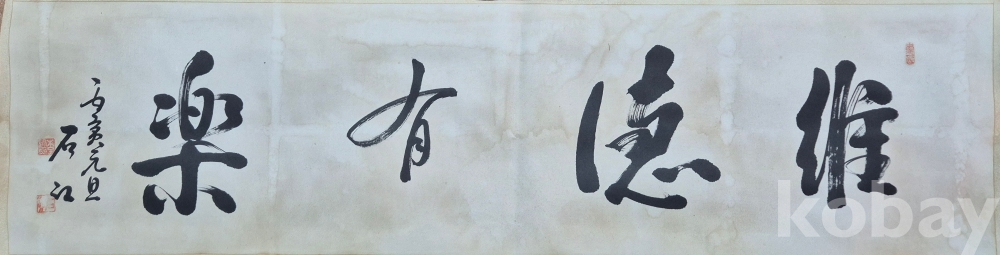 維德有楽
辛亥元旦
石江
kobay